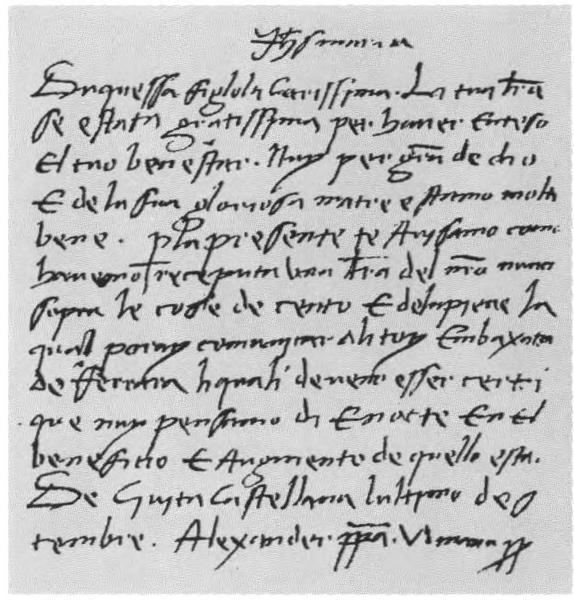 Jhs maria
Duquessa figlola Carissima. La tua lra
se estata gratissima per haver enteso
El tuo ben estar. Nuy per gra de dio
E de la sua gloriosa matre e stamo molto
bene. p la presente te Avisamo como
havemo receputa una lra del nro nunci
sopra le cose de cento E de la pieve la
qual poray comunicar ali toy Embaxatori
de ferrara li quali deveno esser certi
que nuy pensamo di E nocte En el
beneficio E Augmento de quello esta.
De Civita Castellana lultimo de
tembre. Alexander ppa. VI manu pp